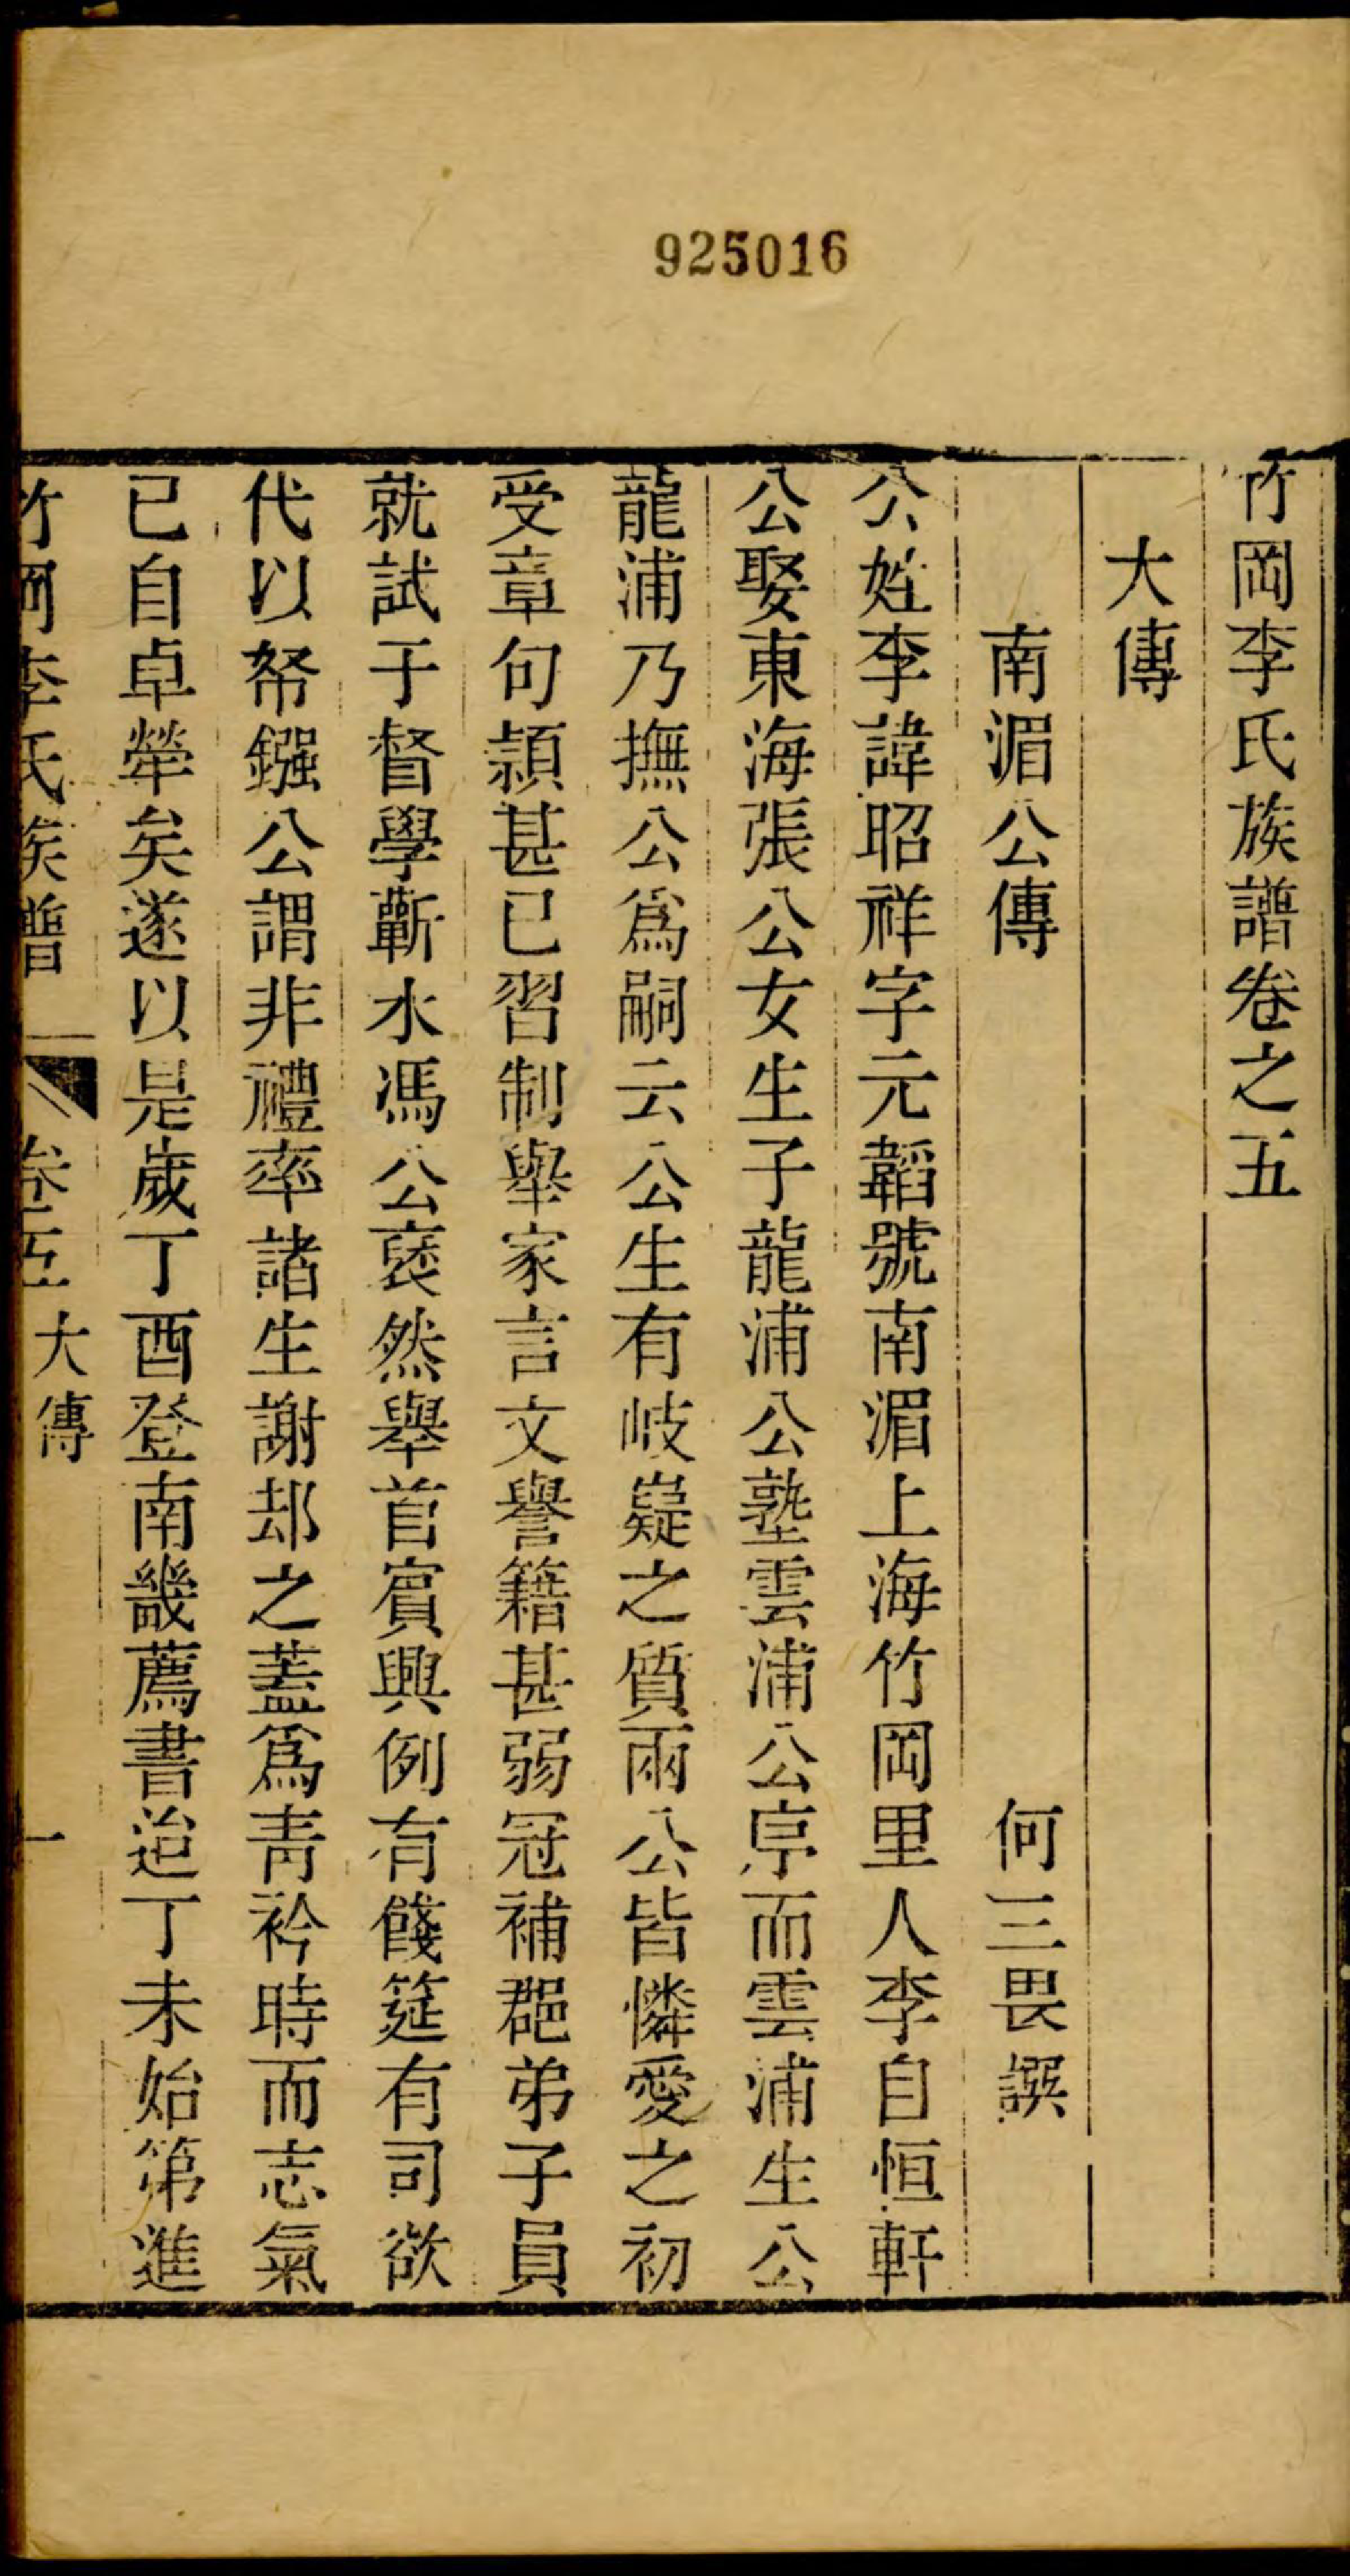 925016
竹岡李氏族譜卷之五
大傳
南湄公傳
何三畏譔
公姓李諱昭祥字元韜號南湄上海竹岡里人李自恒軒
公娶東海張公女生子龍浦公塾雲浦公㡯而雲浦生公
龍浦乃撫公爲嗣云公生有岐嶷之質兩公皆憐愛之初
受章句頴甚已習制舉家言文譽籍甚弱冠補郡弟子員
就試于督學蘄水馮公褎然舉首賓興例有餞筵有司欲
代以帑鏹公謂非禮率諸生謝却之蓋爲青衿時而志氣
已自卓犖矣遂以是歲丁酉登南畿薦書迨丁未始第進
竹岡李氏族譜
卷五
大傳
一